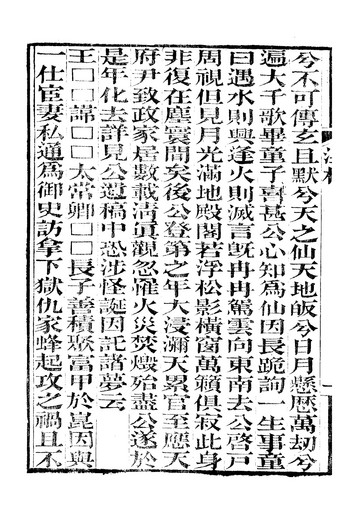 兮不可傳玄且默兮天之仙天地皈兮日月懸歴萬刼兮
遍大千歌畢童子喜甚公心知爲仙因長跪詢一生事童
曰遇水則興逢火則滅言旣冉冉駕雲向東南去公啓戸
周視但見月光滿地殿閣若浮松影橫窗萬籟俱寂此身
非復在塵寰間矣後公登第之年大浸瀰天累官至應天
府尹致政家居數載清眞觀忽罹火災焚燬殆盡公遂於
是年化去詳見公遺稿中恐涉怪誕因託諸夢云
王□□諱□□太常卿□□長子善積聚富甲於崑因與
一仕宦妻私通爲御史訪拿下獄仇家蜂起攻之禍且不